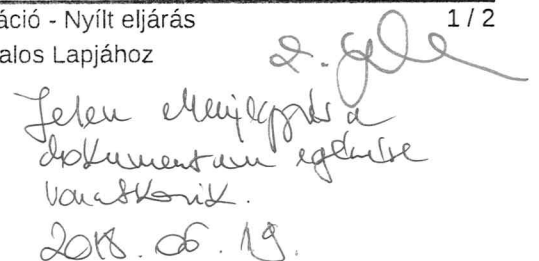 áció - Nyílt eljárás 1 / 2
alos Lapjához
Jelen ellenjegyzés a
dokumentum egészére
vonatkozik.
2018. 06. 19.